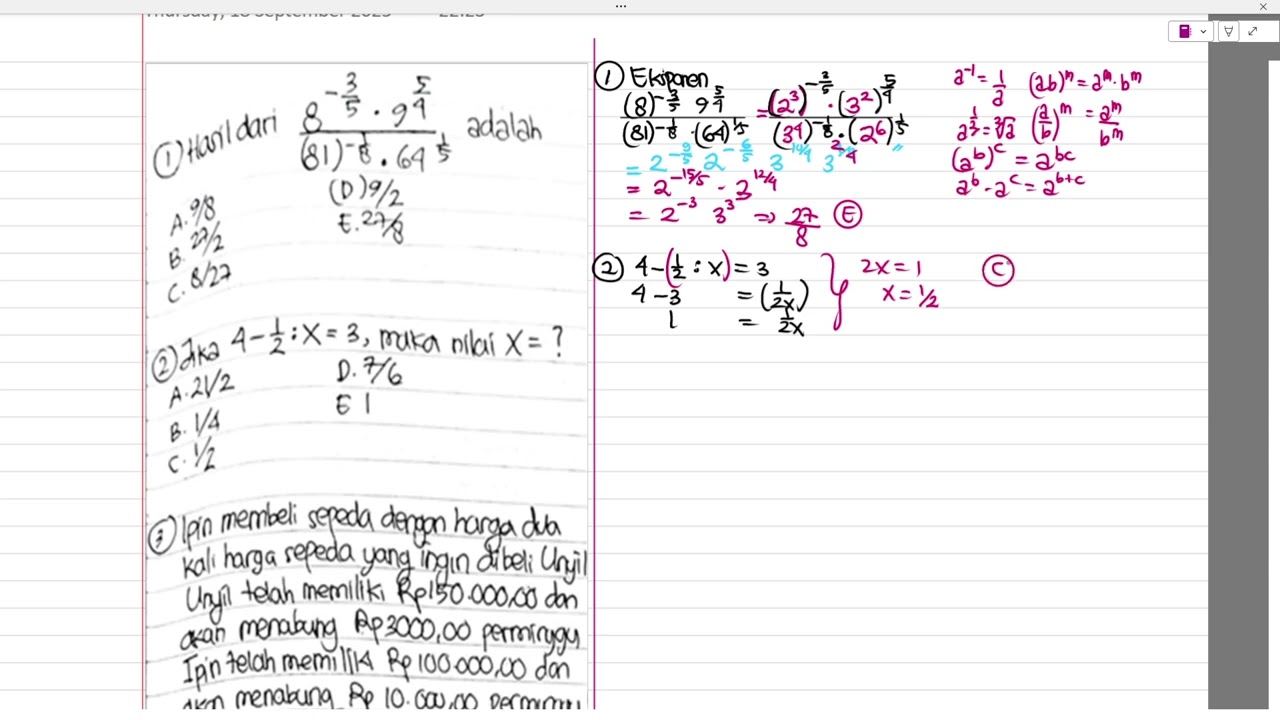 Thursday, 18 September 2025 22:23
① Hasil dari 8^{-3/5} · 9^{5/4} / (81)^{-1/8} · 64^{1/5} adalah
A. 9/8
B. 27/2
C. 8/27
(D) 9/2
E. 27/8
② Jika 4 - 1/2 : X = 3, maka nilai X = ?
A. 21/2
B. 1/4
C. 1/2
D. 7/6
E 1
③ Ipin membeli sepeda dengan harga dua
kali harga sepeda yang ingin dibeli Unyil
Unyil telah memiliki Rp150.000,00 dan
akan menabung Rp3000,00 perminggu
Ipin telah memiliki Rp 100.000,00 dan
akan menabung Rp 10.000,00 perminggu
① Eksponen
(8)^{-3/5} 9^{5/4} / (81)^{-1/8} · (64)^{1/5} = (2³)^{-3/5} · (3²)^{5/4} / (3⁴)^{-1/8} · (2⁶)^{1/5}
= 2^{-9/5} 2^{-6/5} 3^{10/4}
= 2^{-15/5} · 3^{12/4}
= 2^{-3} 3³ => 27/8 (E)
a^{-1} = 1/a
a^{1/3} = ∛a
(ab)^m = a^m · b^m
(a/b)^m = a^m/b^m
(a^b)^c = a^{bc}
a^b · a^c = a^{b+c}
② 4 - (1/2 : x) = 3
4 - 3 = (1/2x)
1 = 1/2x
2x = 1
x = 1/2
(C)